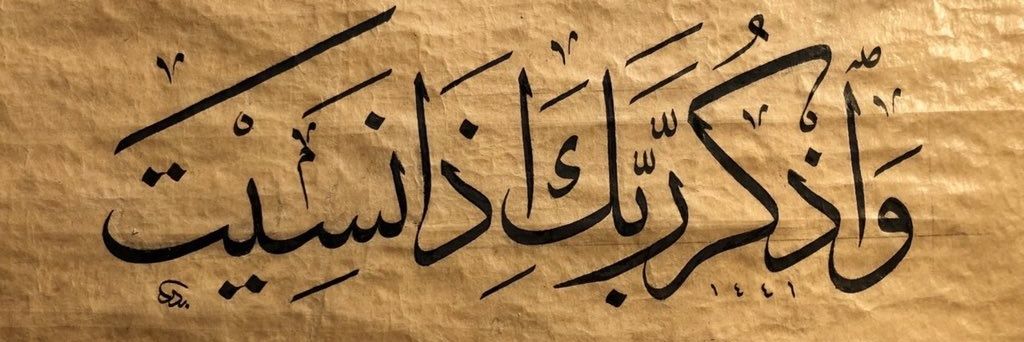 وَٱذْكُرْ رَبَّكَ إِذَا نَسِيْتَ
١٤٤١